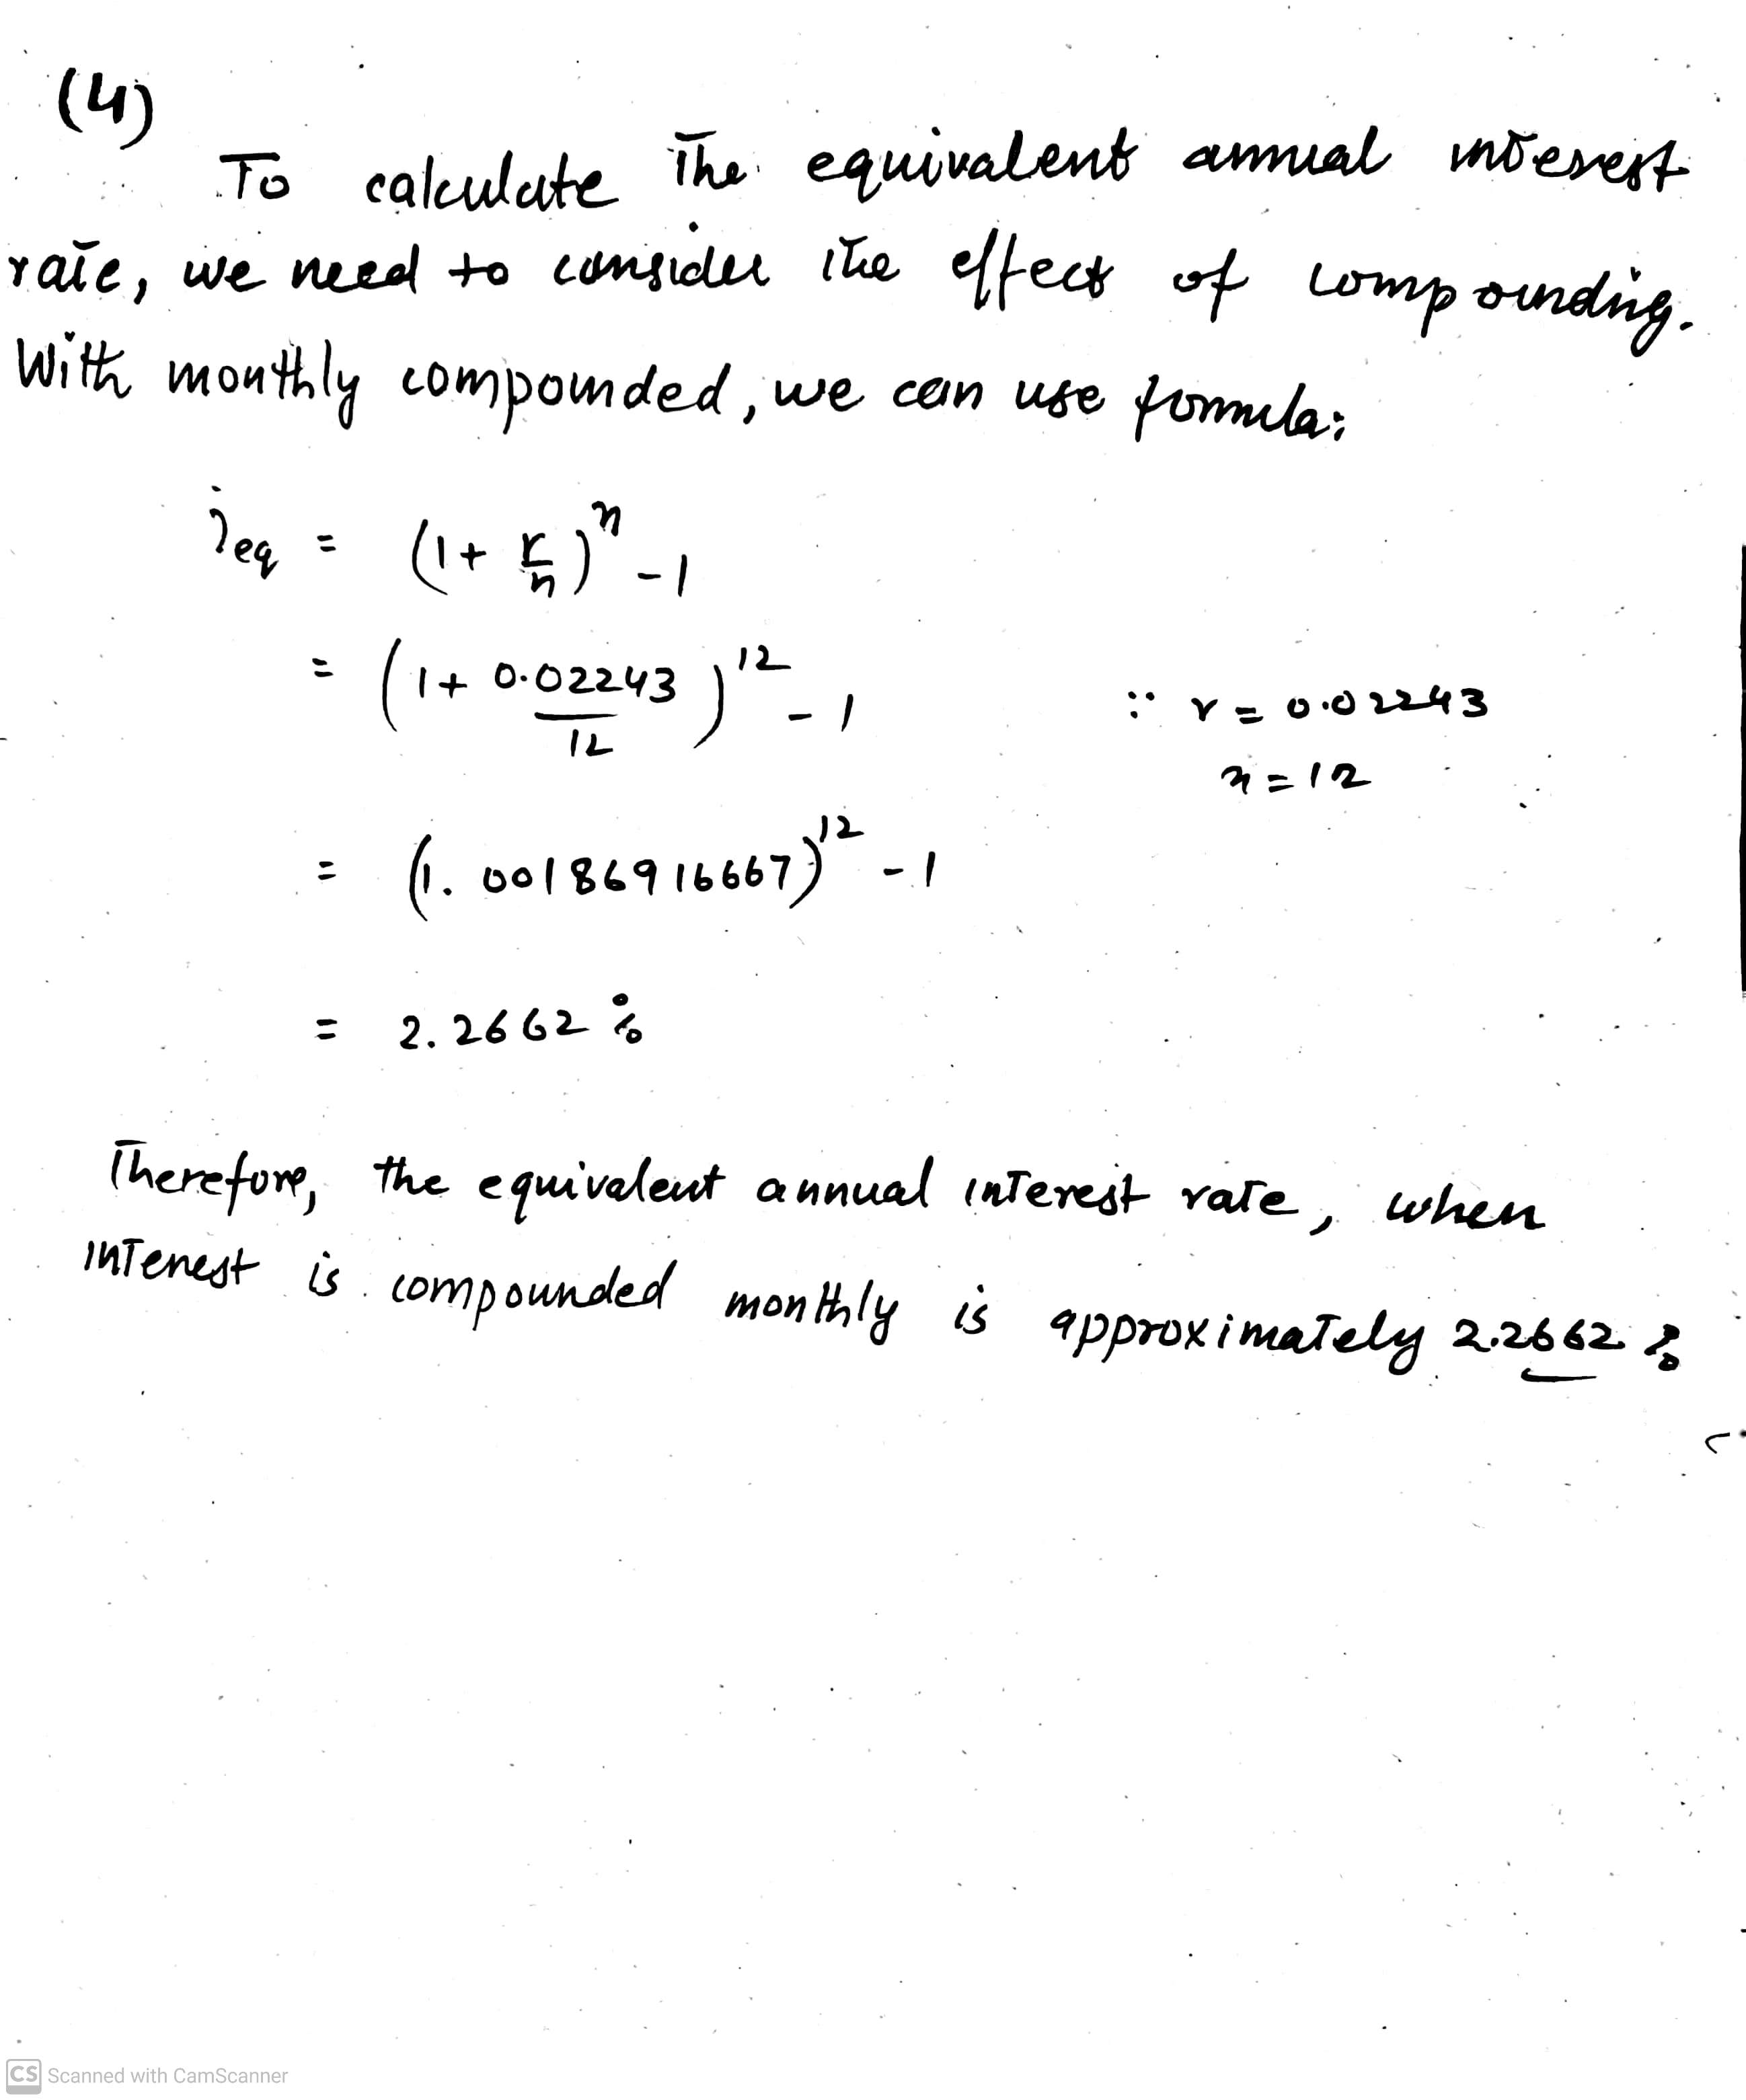 (4)
To calculate The equivalent annual interest
rate, we need to consider the effect of compounding.
With monthly compounded, we can use formula:
ieq = (1 + r/n)^n - 1
= (1 + 0.02243/12)^12 - 1 ∵ r = 0.02243
n = 12
= (1.00186916667)^12 - 1
= 2.2662 %
Therefore, the equivalent annual interest rate, when
interest is compounded monthly is approximately 2.2662 %
CS Scanned with CamScanner